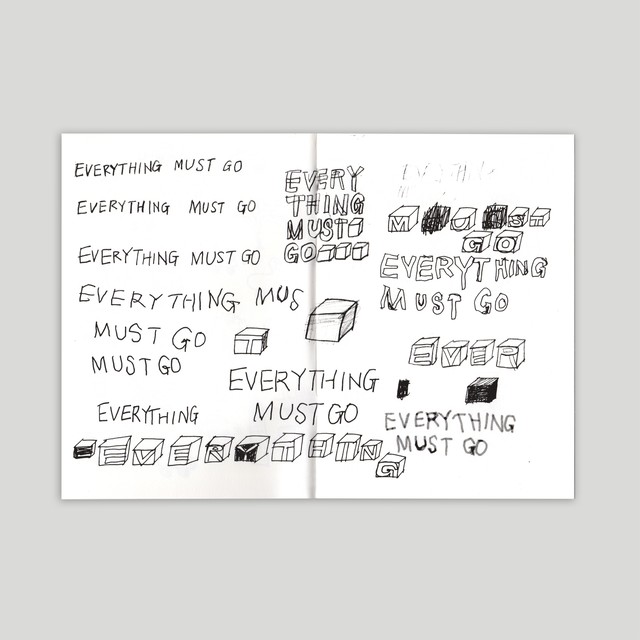 EVERYTHING MUST GO
EVERYTHING MUST GO
EVERYTHING MUST GO
EVERYTHING MUS
MUST GO
MUST GO
T
EVERYTHING
MUST GO
EVERYTHING
EVERYTHING
EVERY
THING
MUST
GO
MUST
GO
EVERYTHING
MUST GO
EVER
EVERYTHING
MUST GO